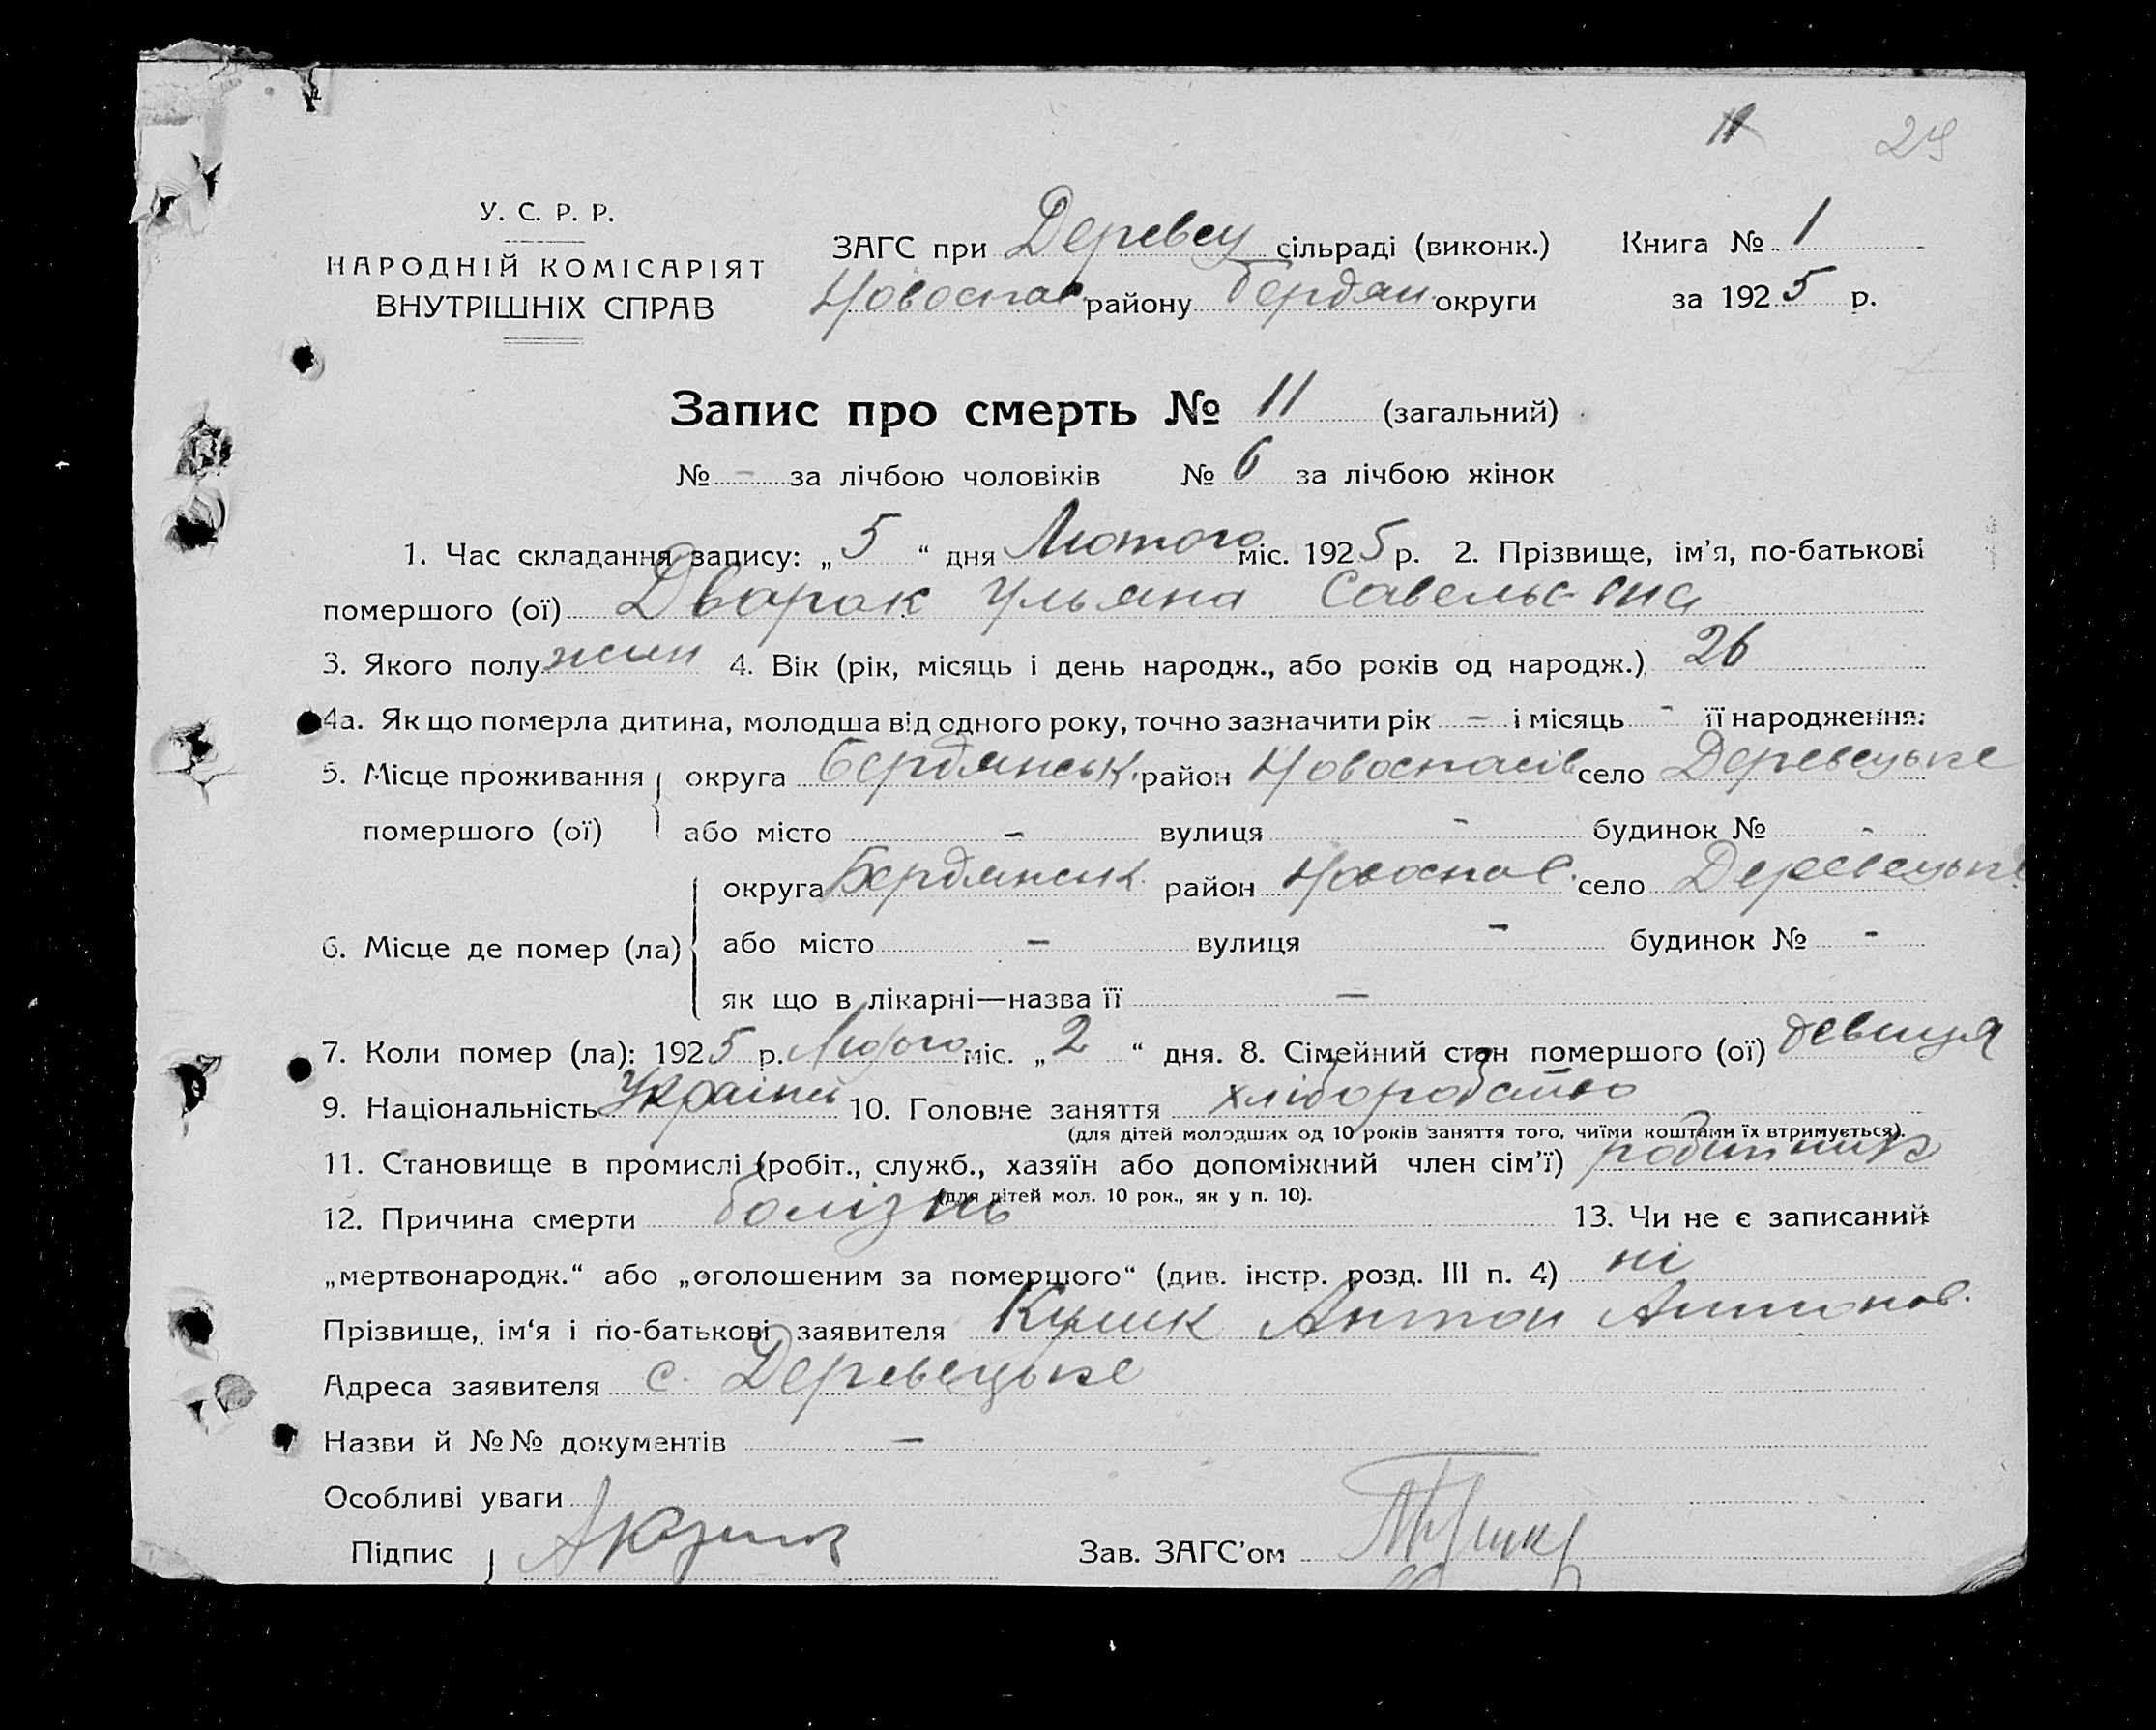 11 29
У. С. Р. Р.
НАРОДНІЙ КОМІСАРІЯТ
ВНУТРІШНІХ СПРАВ
ЗАГС при Деревец сільраді (виконк.)
Новоспав. району Бердян. округи
Книга № 1
за 1925 р.
Запис про смерть № 11 (загальний)
№ - за лічбою чоловіків № 6 за лічбою жінок
1. Час складання запису: „5“ дня Лютого міс. 1925 р. 2. Прізвище, ім'я, по-батькові
помершого (ої) Дворак Ульяна Савельевна
3. Якого полу жин 4. Вік (рік, місяць і день народж., або років од народж.) 26
4а. Як що померла дитина, молодша від одного року, точно зазначити рік - і місяць - її народження:
5. Місце проживання округа Бердянськ. район Новоспасів село Деревецьке
помершого (ої) або місто - вулиця - будинок № -
округа Бердянськ. район Новоспав. село Деревецьке
6. Місце де помер (ла) або місто - вулиця - будинок № -
як що в лікарні—назва її —
7. Коли помер (ла): 1925 р. Лютого міс. „2“ дня. 8. Сімейний стан помершого (ої) девиця
9. Національність Україн 10. Головне заняття хліборобство
(для дітей молодших од 10 років заняття того, чиїми коштами їх втримується).
11. Становище в промислі (робіт., служб., хазяїн або допоміжний член сім'ї)
(для дітей мол. 10 рок., як у п. 10).
12. Причина смерти болізнь 13. Чи не є записаний
„мертвонародж.“ або „оголошеним за помершого“ (див. інстр. розд. III п. 4) ні
Прізвище, ім'я і по-батькові заявителя Кулик Антон Антонов.
Адреса заявителя с. Деревецьке
Назви й №№ документів —
Особливі уваги
Підпис
Зав. ЗАГС'ом